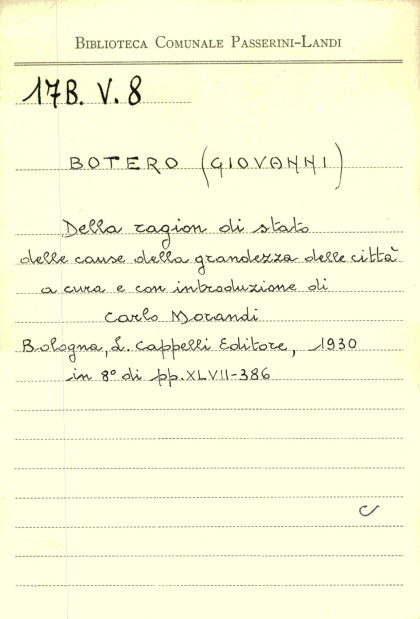 BIBLIOTECA COMUNALE PASSERINI-LANDI
17B. V. 8
BOTERO (GIOVANNI)
Della ragion di stato
delle cause della grandezza delle città
a cura e con introduzione di
Carlo Morandi
Bologna, L. Cappelli Editore, 1930
in 8° di pp. XLVII-386
C